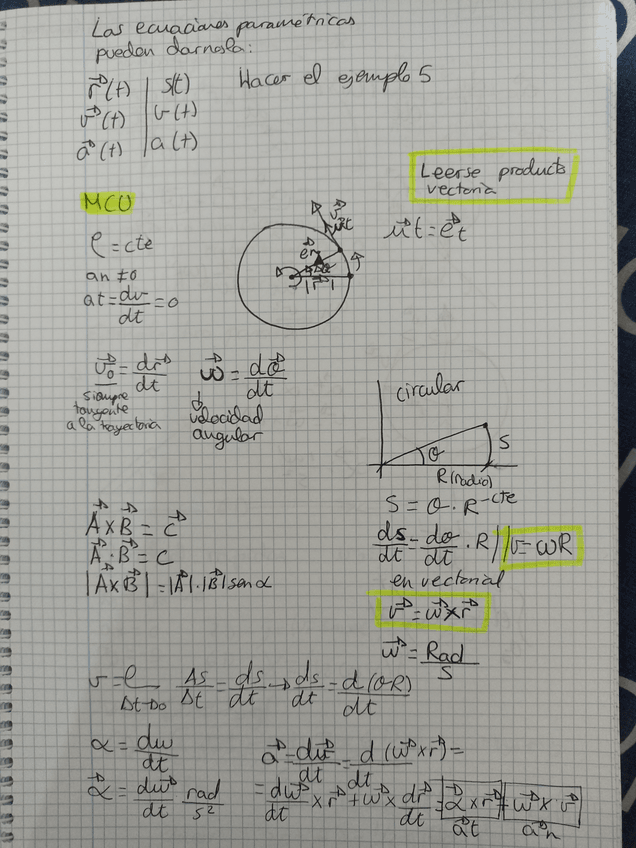 Las ecuaciones paramétricas
pueden darnosla:
r⃗(t) | s(t)
v⃗(t) | v(t)
a⃗(t) | a(t)
Hacer el ejemplo 5
Leerse producto
vectoria
MCU
ρ = cte
an ≠ 0
at = dv/dt = 0
v⃗
u⃗t
e⃗r
θ
|r⃗|
u⃗t = e⃗t
v⃗₀ = dr⃗/dt
siempre
tangente
a la trayectoria
ω⃗ = dθ⃗/dt
velocidad
angular
circular
θ
S
R(radio)
S = θ · R - cte
ds/dt = dθ/dt · R // v = ωR
en vectorial
v⃗ = ω⃗ × r⃗
ω⃗ = Rad/s
A⃗ × B⃗ = C⃗
A⃗ · B⃗ = C
|A⃗ × B⃗| = |A⃗| · |B⃗| sen α
v = ℓ Δt→0 Δs/Δt = ds/dt → ds/dt = d(θR)/dt
α = dω/dt
α⃗ = dω⃗/dt rad/s²
a⃗ = dv⃗/dt = d/dt (ω⃗ × r⃗) =
= dω⃗/dt × r⃗ + ω⃗ × dr⃗/dt = α⃗ × r⃗ + ω⃗ × v⃗
a⃗t a⃗n